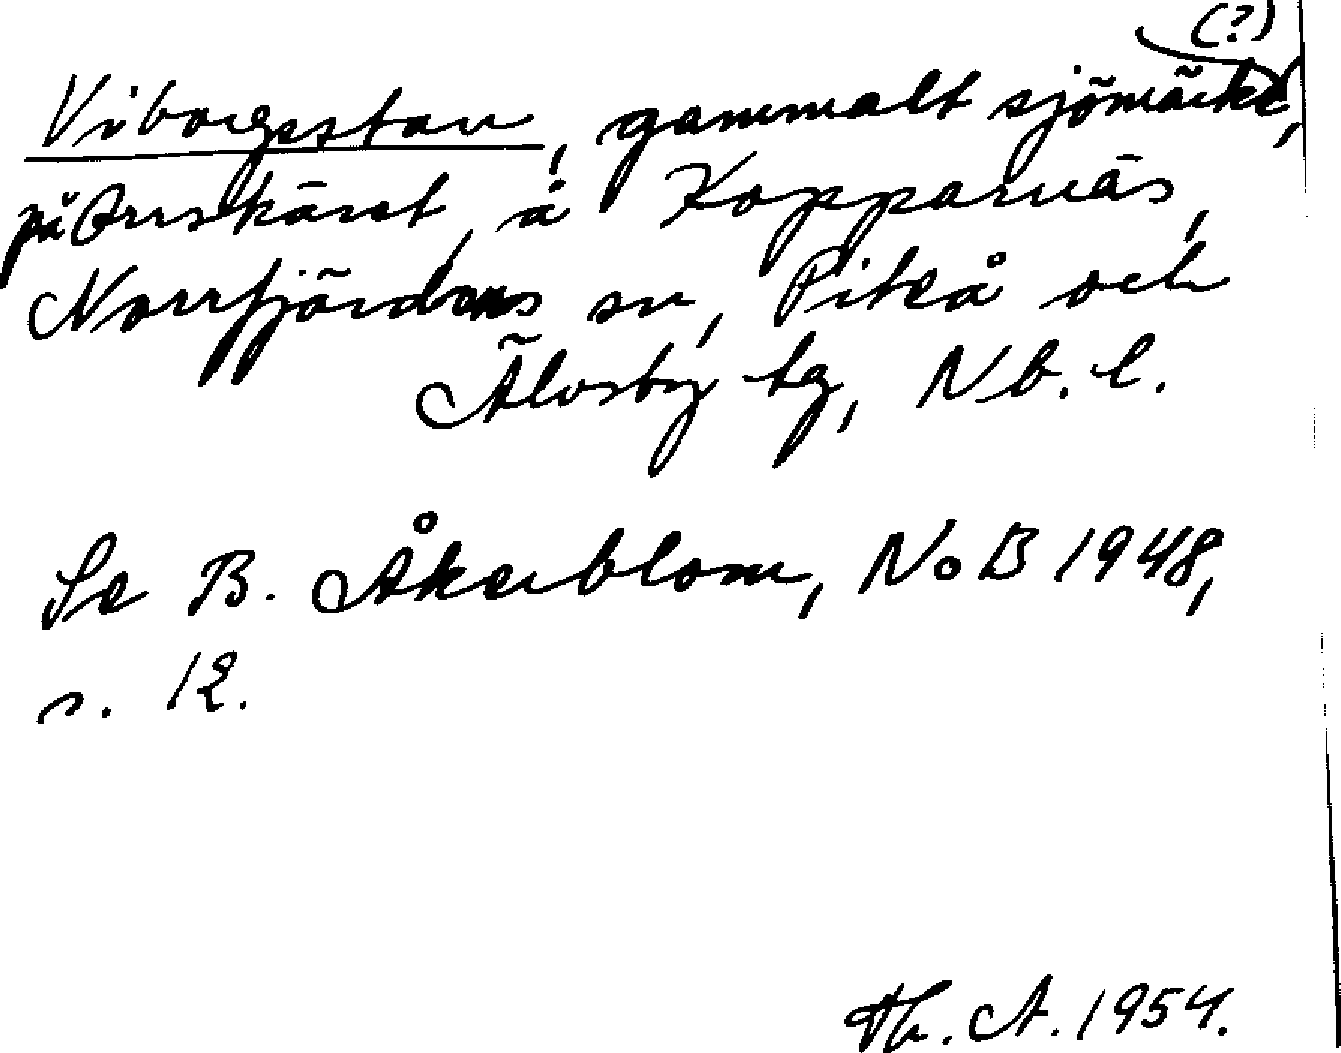 (?)
Viborgsstav, gammalt sjömärke,
på Orrskäret, å Kopparnäs,
Norrfjärdens sn, Piteå och
Älvsby tg, Nb. l.
Se B. Åkerblom, NoB 1948,
s. 12.
Th. A. 1954.